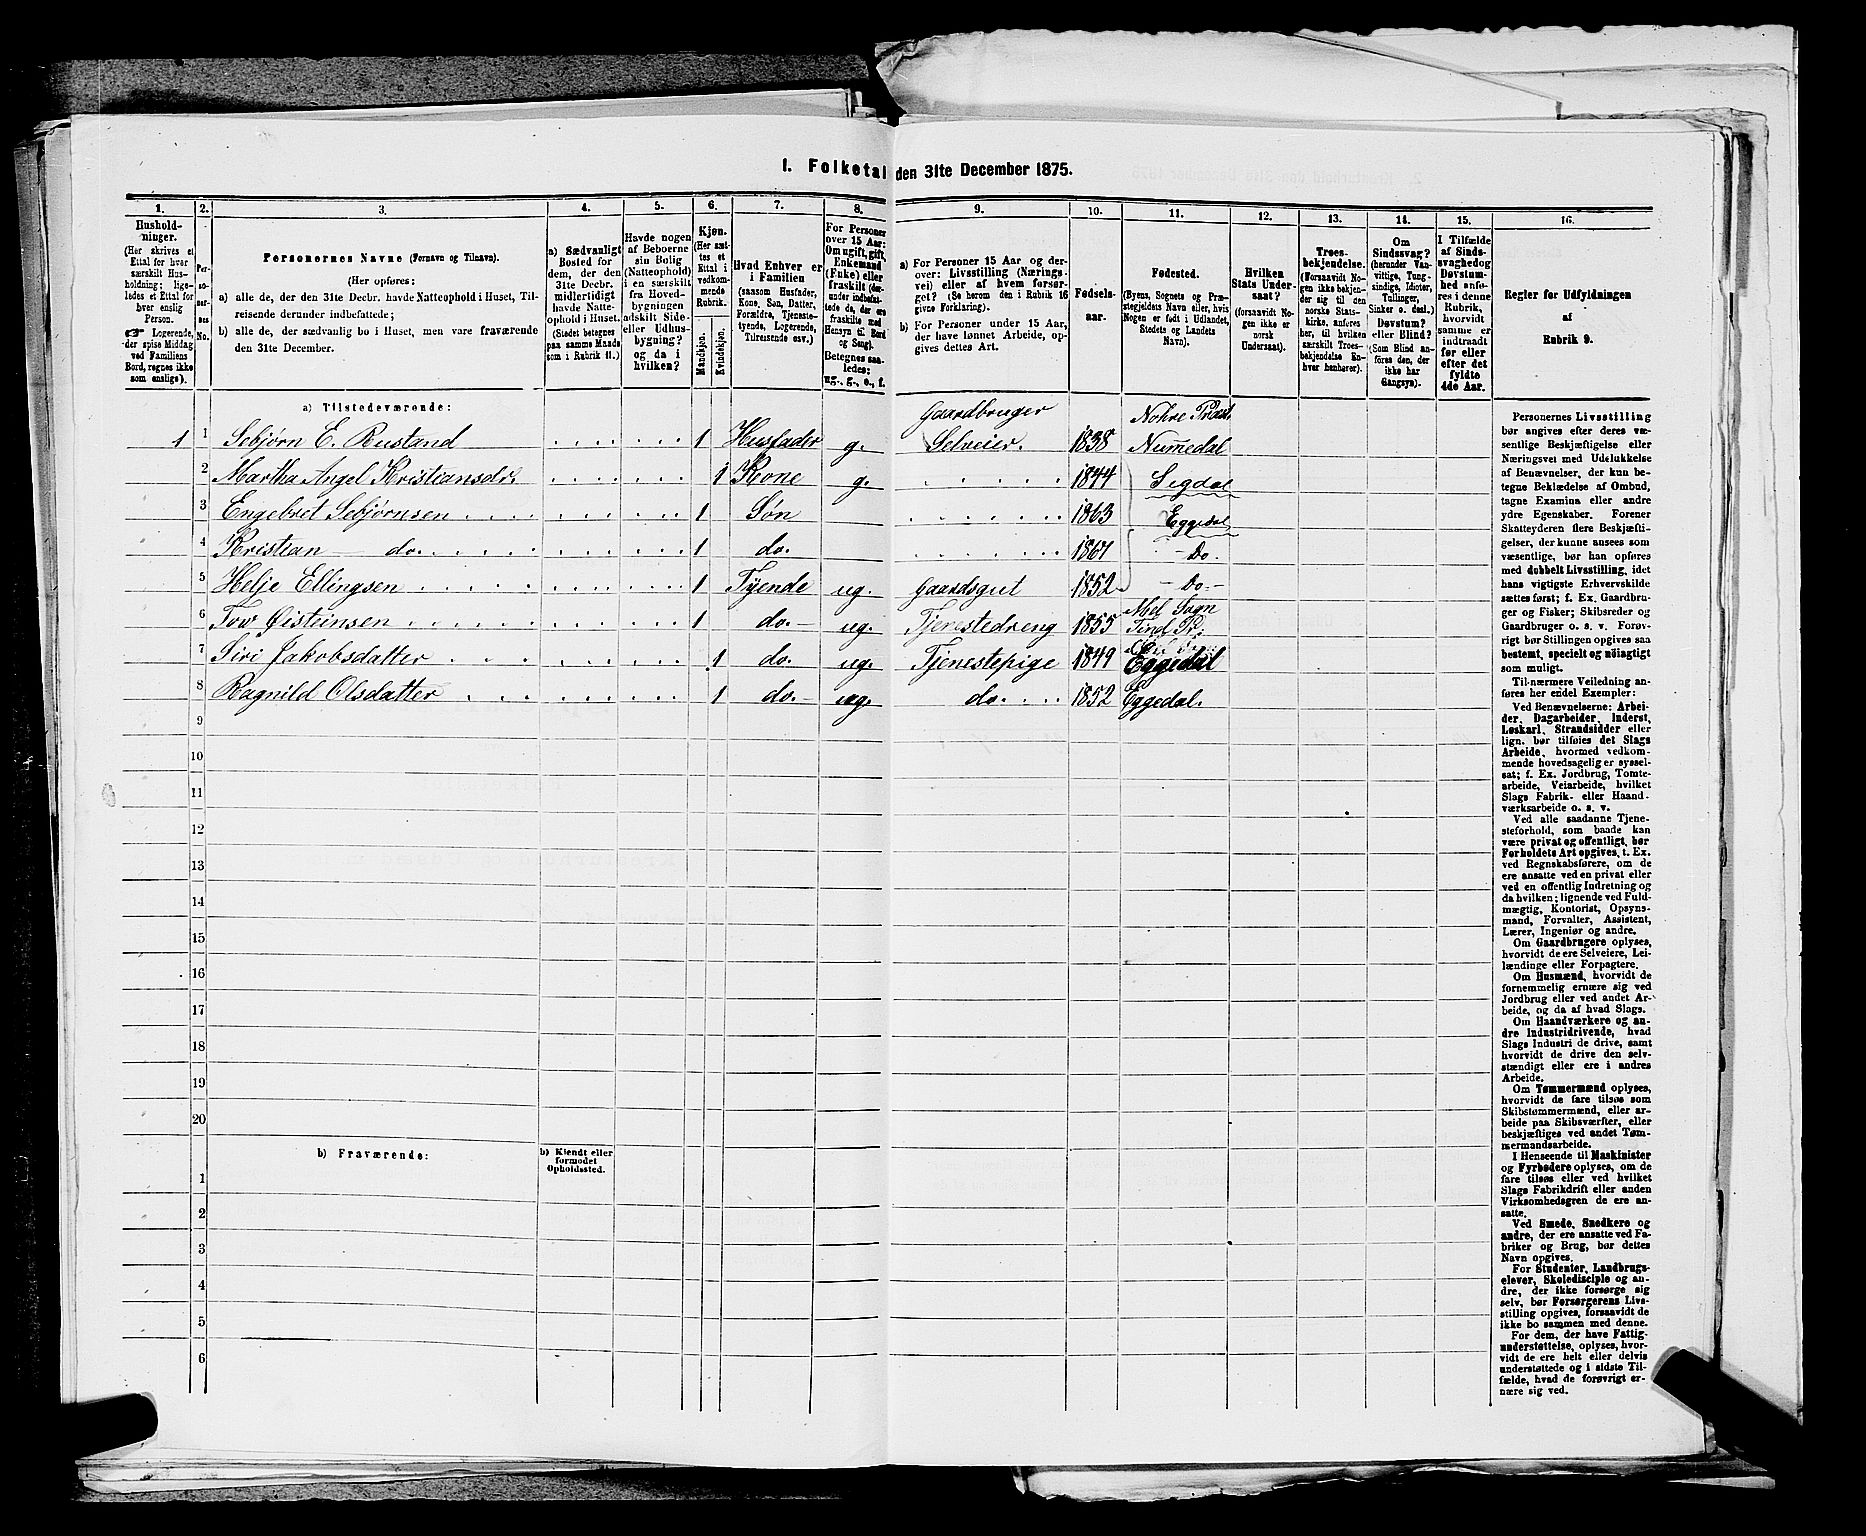 1. Folketal den 31te December 1875.
1. 2. 3. 4. 5. 6. 7. 8. 9. 10. 11. 12. 13. 14. 15. 16.
Hushold-
ninger.
(Her skrives et
Ettal for hver
særskilt Hus-
holdning; lige-
ledes et Ettal for
hver enslig
Person.
☞ Logerende,
der spise Middag
ved Familiens
Bord, regnes ikke
som enslige).
Per-
so-
ner-
nes
No.
Personernes Navne (Fornavn og Tilnavn).
(Her opføres:
a) alle de, der den 31te Decbr. havde Natteophold i Huset, Til-
reisende derunder indbefattede;
b) alle de, der sædvanlig bo i Huset, men vare fraværende
den 31te December.
a) Sædvanligt
Bosted for
dem, der den
31te Decbr.
midlertidigt
havde Natte-
ophold i Huset.
(Stedet betegnes
paa samme Maade
som i Rubrik 11.)
Havde nogen
af Beboerne
sin Bolig
(Natteophold)
i en særskilt
fra Hoved-
bygningen
adskilt Side-
eller Udhus-
bygning?
og da i
hvilken?
Kjøn.
(Her sæt-
tes et
Ettal i
vedkom-
mende
Rubrik.
Mandkjøn.
Kvindekjøn.
Hvad Enhver er
i Familien
(saasom Husfader,
Kone, Søn, Datter,
Forældre, Tjeneste-
tyende, Logerende,
Tilreisende osv.)
For Personer
over 15 Aar:
Om ugift, gift,
Enkemand
(Enke) eller
fraskilt (der-
under indbefat-
tede de, der ere
fraskilte med
Hensyn til Bord
og Seng).
Betegnes saa-
ledes:
ug., g., e., f.
a) For Personer 15 Aar og der-
over: Livsstilling (Nærings-
vei) eller af hvem forsør-
get? (Se herom den i Rubrik 16
givne Forklaring).
b) For Personer under 15 Aar,
der have lønnet Arbeide, op-
gives dettes Art.
Fødsels-
aar.
Fødested.
(Byens, Sognets og Præ-
stegjeldets Navn eller, hvis
Nogen er født i Udlandet,
Stedets og Landets
Navn).
Hvilken
Stats Under-
saat?
(forsaavidt No-
gen ikke er
norsk
Undersaat).
Troes-
bekjendelse.
(Forsaavidt No-
gen ikke bekjen-
der sig til den
norske Stats-
kirke, anføres
her, til hvilken
særskilt Troes-
bekjendelse En-
hver henhører).
Om
Sindssvag?
(herunder Van-
vittige, Tung-
sindige, Idioter,
Tullinger,
Sinker o. desl.)
Døvstum?
eller Blind?
(Som Blind an-
føres den, der
ikke har
Gangsyn).
I Tilfælde
af Sinds-
svaghed og
Døvstum-
hed anfø-
res i denne
Rubrik,
hvorvidt
samme er
indtraadt
før eller
efter det
fyldte
4de Aar.
Regler for Udfyldningen
af
Rubrik 9.
a) Tilstedeværende:
Gaardbruger Nohre Præst.
1 1 Sebjørn E. Rustand 1 Husfader g. Selveier. 1838 Numedal
2 Martha Angel Kristiansdr. 1 Kone g. 1844 Sigdal
3 Engebret Sebjørnsen 1 Søn 1863 Eggedal
4 Kristian — do. 1 do. 1867 - Do -
5 Helje Ellingsen 1 Tyende ug. Gaardsgut 1852 - Do -
6 Tov Øisteinsen 1 do. ug. Tjenestedreng 1855 Mel Sogn
Tind Pr:
7 Siri Jakobsdatter 1 do. ug. Tjenestepige 1849 Eggedal
8 Ragnild Olsdatter 1 do. ug. do. 1852 Eggedal.
9
10
11
12
13
14
15
16
17
18
19
20
b) Fraværende:
b) Kjendt eller
formodet
Opholdssted.
1
2
3
4
5
6
Personernes Livsstilling
bør angives efter deres væ-
sentlige Beskjæftigelse eller
Næringsvei med Udelukkelse
af Benævnelser, der kun be-
tegne Beklædelse af Ombud,
tagne Examina eller andre
ydre Egenskaber. Forener
Skatteyderen flere Beskjæfti-
gelser, der kunne ansees som
væsentlige, bør han opføres
med dobbelt Livsstilling, idet
hans vigtigste Erhvervskilde
sættes først; f. Ex. Gaardbru-
ger og Fisker; Skibsreder og
Gaardbruger o. s. v. Forøv-
rigt bør Stillingen opgives saa
bestemt, specielt og nøiagtigt
som muligt.
Til nærmere Veiledning an-
føres her endel Exempler:
Ved Benævnelserne: Arbei-
der, Dagarbeider, Inderst,
Løskarl, Strandsidder eller
lign. bør tilføies det Slags
Arbeide, hvormed vedkom-
mende hovedsagelig er syssel-
sat; f. Ex. Jordbrug, Tomte-
arbeide, Veiarbeide, hvilket
Slags Fabrik- eller Haand-
værksarbeide o. s. v.
Ved alle saadanne Tjene-
steforhold, som baade kan
være privat og offentligt, bør
Forholdets Art opgives, t. Ex.
ved Regnskabsførere, om de
ere ansatte ved en privat eller
ved en offentlig Indretning og
da hvilken; lignende ved Fuld-
mægtig, Kontorist, Opsyns-
mand, Forvalter, Assistent,
Lærer, Ingeniør og andre.
Om Gaardbrugere oplyses,
hvorvidt de ere Selveiere, Lei-
lændinge eller Forpagtere.
Om Husmænd, hvorvidt de
fornemmelig ernære sig ved
Jordbrug eller ved andet Ar-
beide, og da af hvad Slags.
Om Haandværkere og an-
dre Industridrivende, hvad
Slags Industri de drive, samt
hvorvidt de drive den selv-
stændigt eller ere i andres
Arbeide.
Om Tømmermænd oplyses,
hvorvidt de fare tilsøs som
Skibstømmermænd, eller ar-
beide paa Skibsværfter, eller
beskjæftiges ved andet Tøm-
mermandsarbeide.
I Henseende til Maskinister
og Fyrbødere oplyses, om de
fare tilsøs eller ved hvilket
Slags Fabrikdrift eller anden
Virksomhedsgren de ere an-
satte.
Ved Smede, Snedkere og
andre, der ere ansatte ved Fa-
briker og Brug, bør dettes
Navn opgives.
For Studenter, Landbrugs-
elever, Skoledisciple og an-
dre, der ikke forsørge sig
selv, bør Forsørgerens Livs-
stilling opgives, forsaavidt de
ikke bo sammen med denne.
For dem, der have Fattig-
understøttelse, oplyses, hvor-
vidt de ere helt eller delvis
understøttede og i sidste Til-
fælde, hvad de forøvrigt er-
nære sig ved.